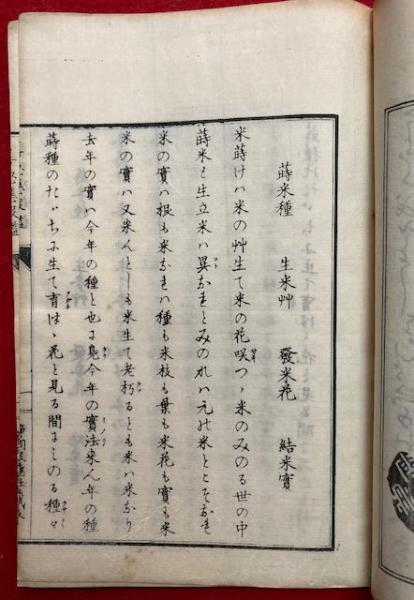 蒔米種 生米艸 發米花 結米實
米蒔けハ米の艸生て米の花咲つゝ米のみのる世の中
蒔米と生立米ハ異なれとみのれハ元の米とこそなれ
米の實ハ根も米なれハ種も米枝も葉も米花も實も米
米の實ハ又米人としも米生て老朽るとも米ハ米なり
去年の實ハ今年の種と也にけり今年の實法来ん年の種
蒔種のたゞちに生て育はゝ花と見る間にみのる種々